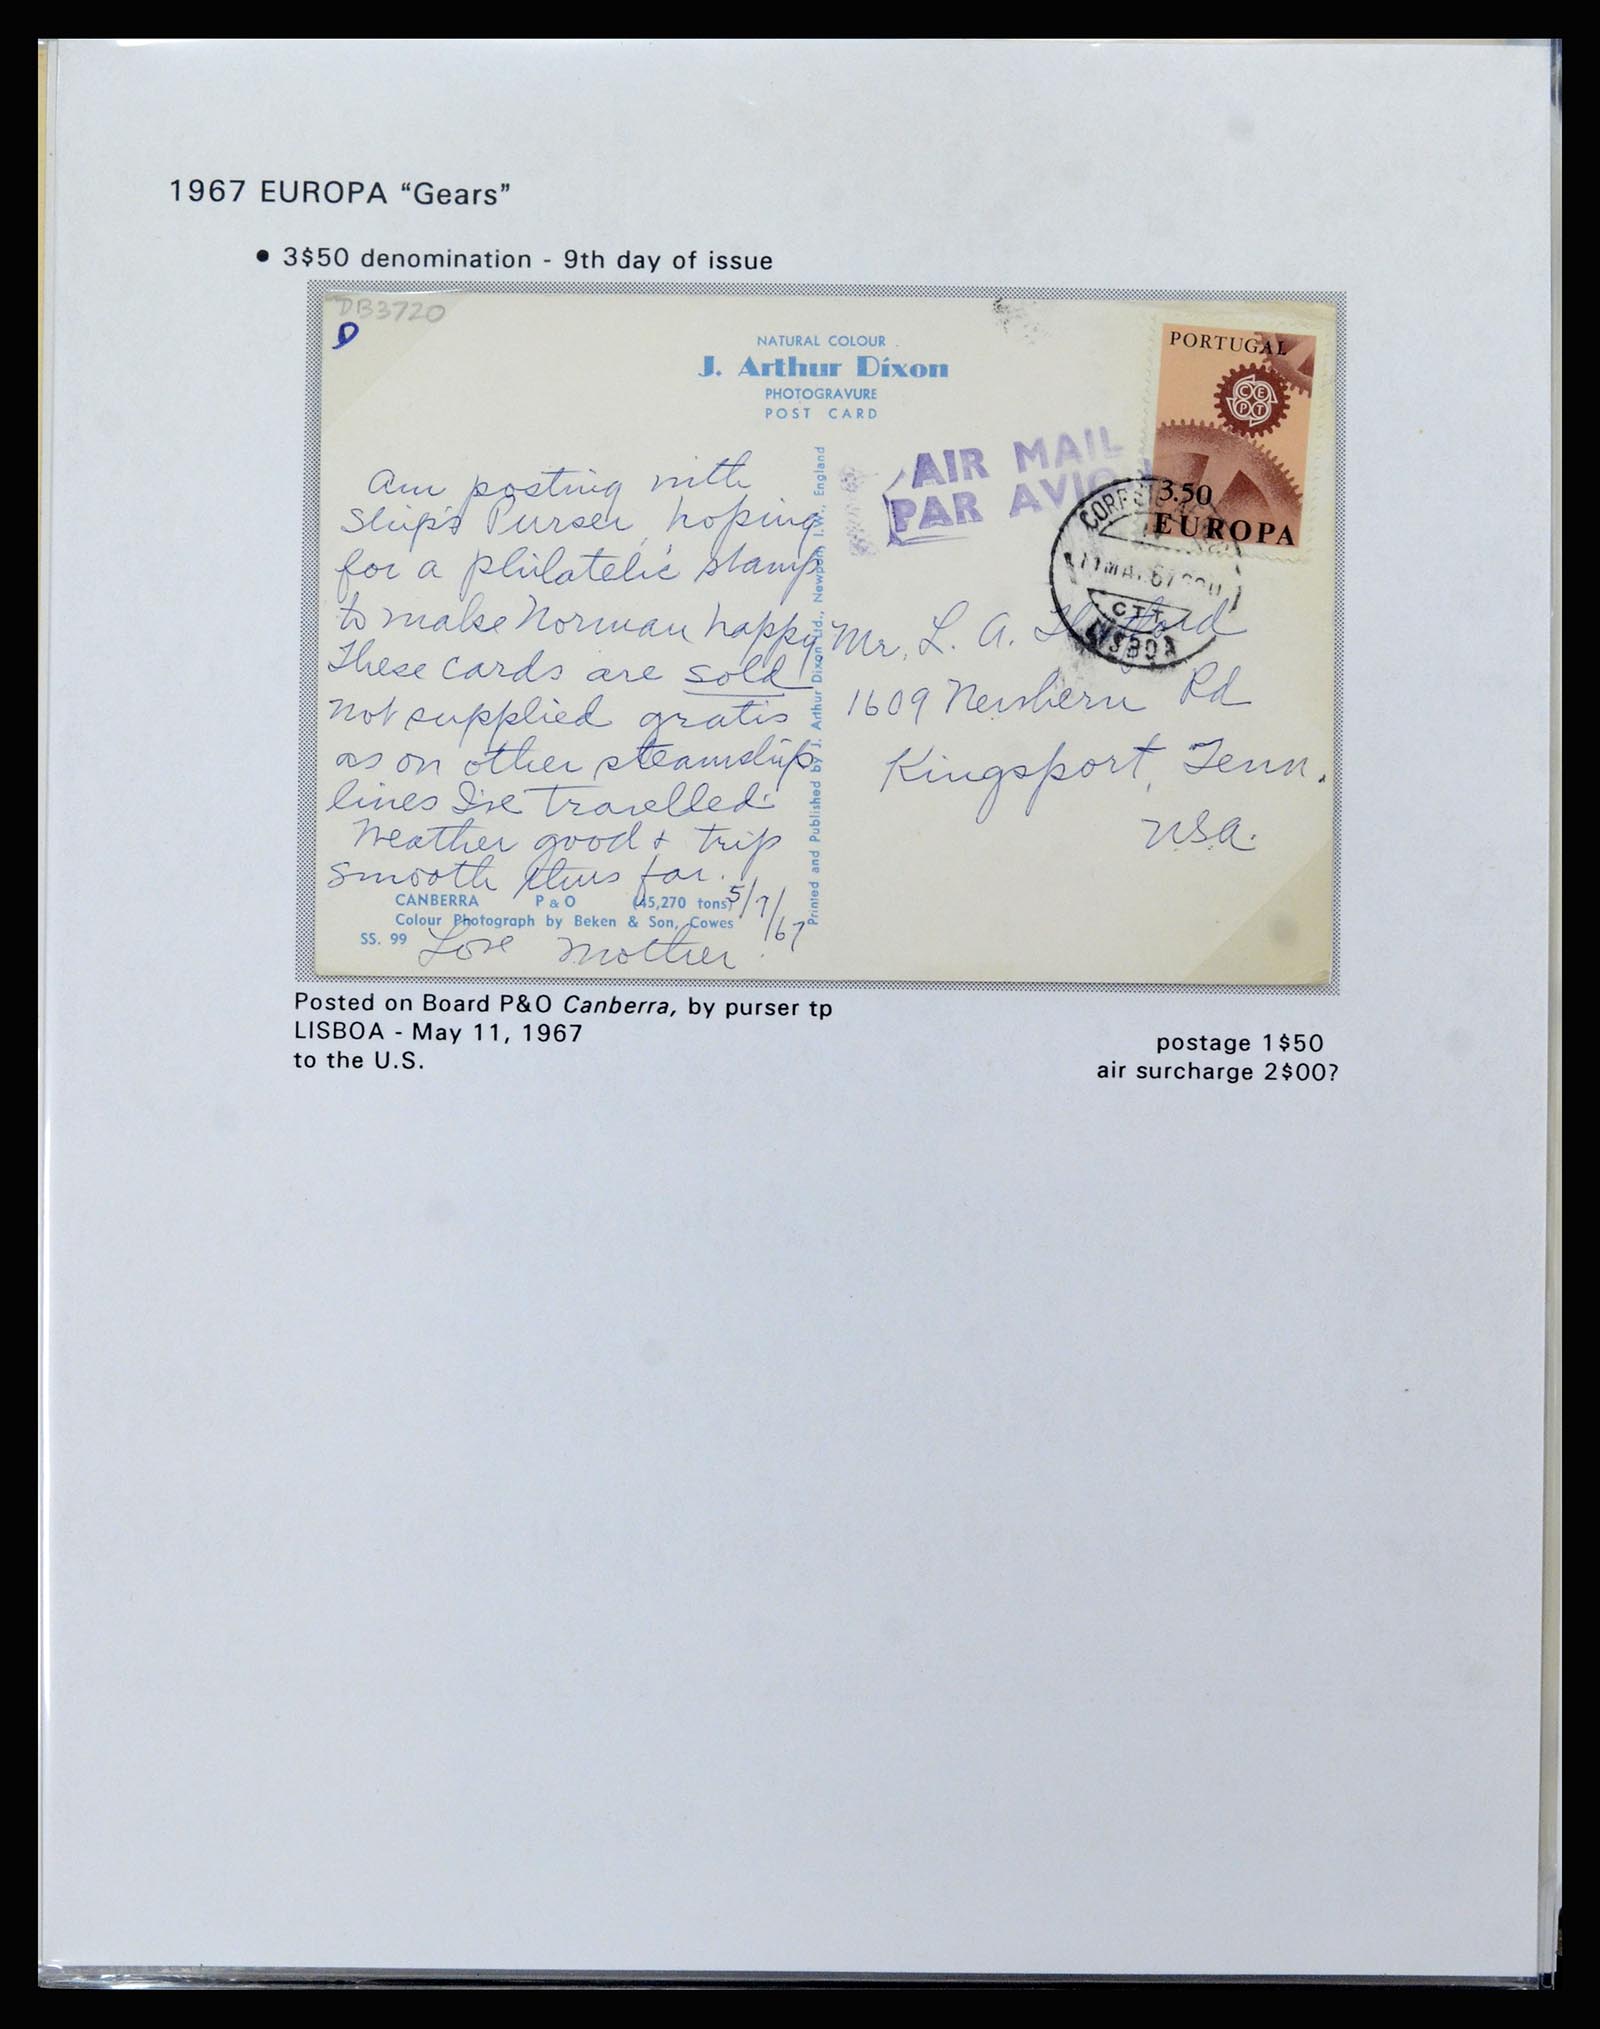 1967 EUROPA “Gears”
• 3$50 denomination - 9th day of issue
DB3720
D
NATURAL COLOUR
J. Arthur Dixon
PHOTOGRAVURE
POST CARD
PORTUGAL
CEPT
3.50
EUROPA
AIR MAIL
PAR AVION
11 MAI. 67
CTT
LISBOA
Am posting with
Ship's Purser, hoping
for a philatelic stamp
to make Norman happy
These cards are sold
not supplied gratis
as on other steamship
lines I've travelled.
Weather good & trip
smooth thus far.
5/7/67
Love Mother.
Mr. L. A.
1609 Newbern Rd
Kingsport, Tenn.
USA.
Printed and Published by J. Arthur Dixon Ltd., Newport, I.W., England
CANBERRA P & O (45,270 tons)
Colour Photograph by Beken & Son, Cowes
SS. 99
Posted on Board P&O Canberra, by purser tp
LISBOA - May 11, 1967
to the U.S.
postage 1$50
air surcharge 2$00?